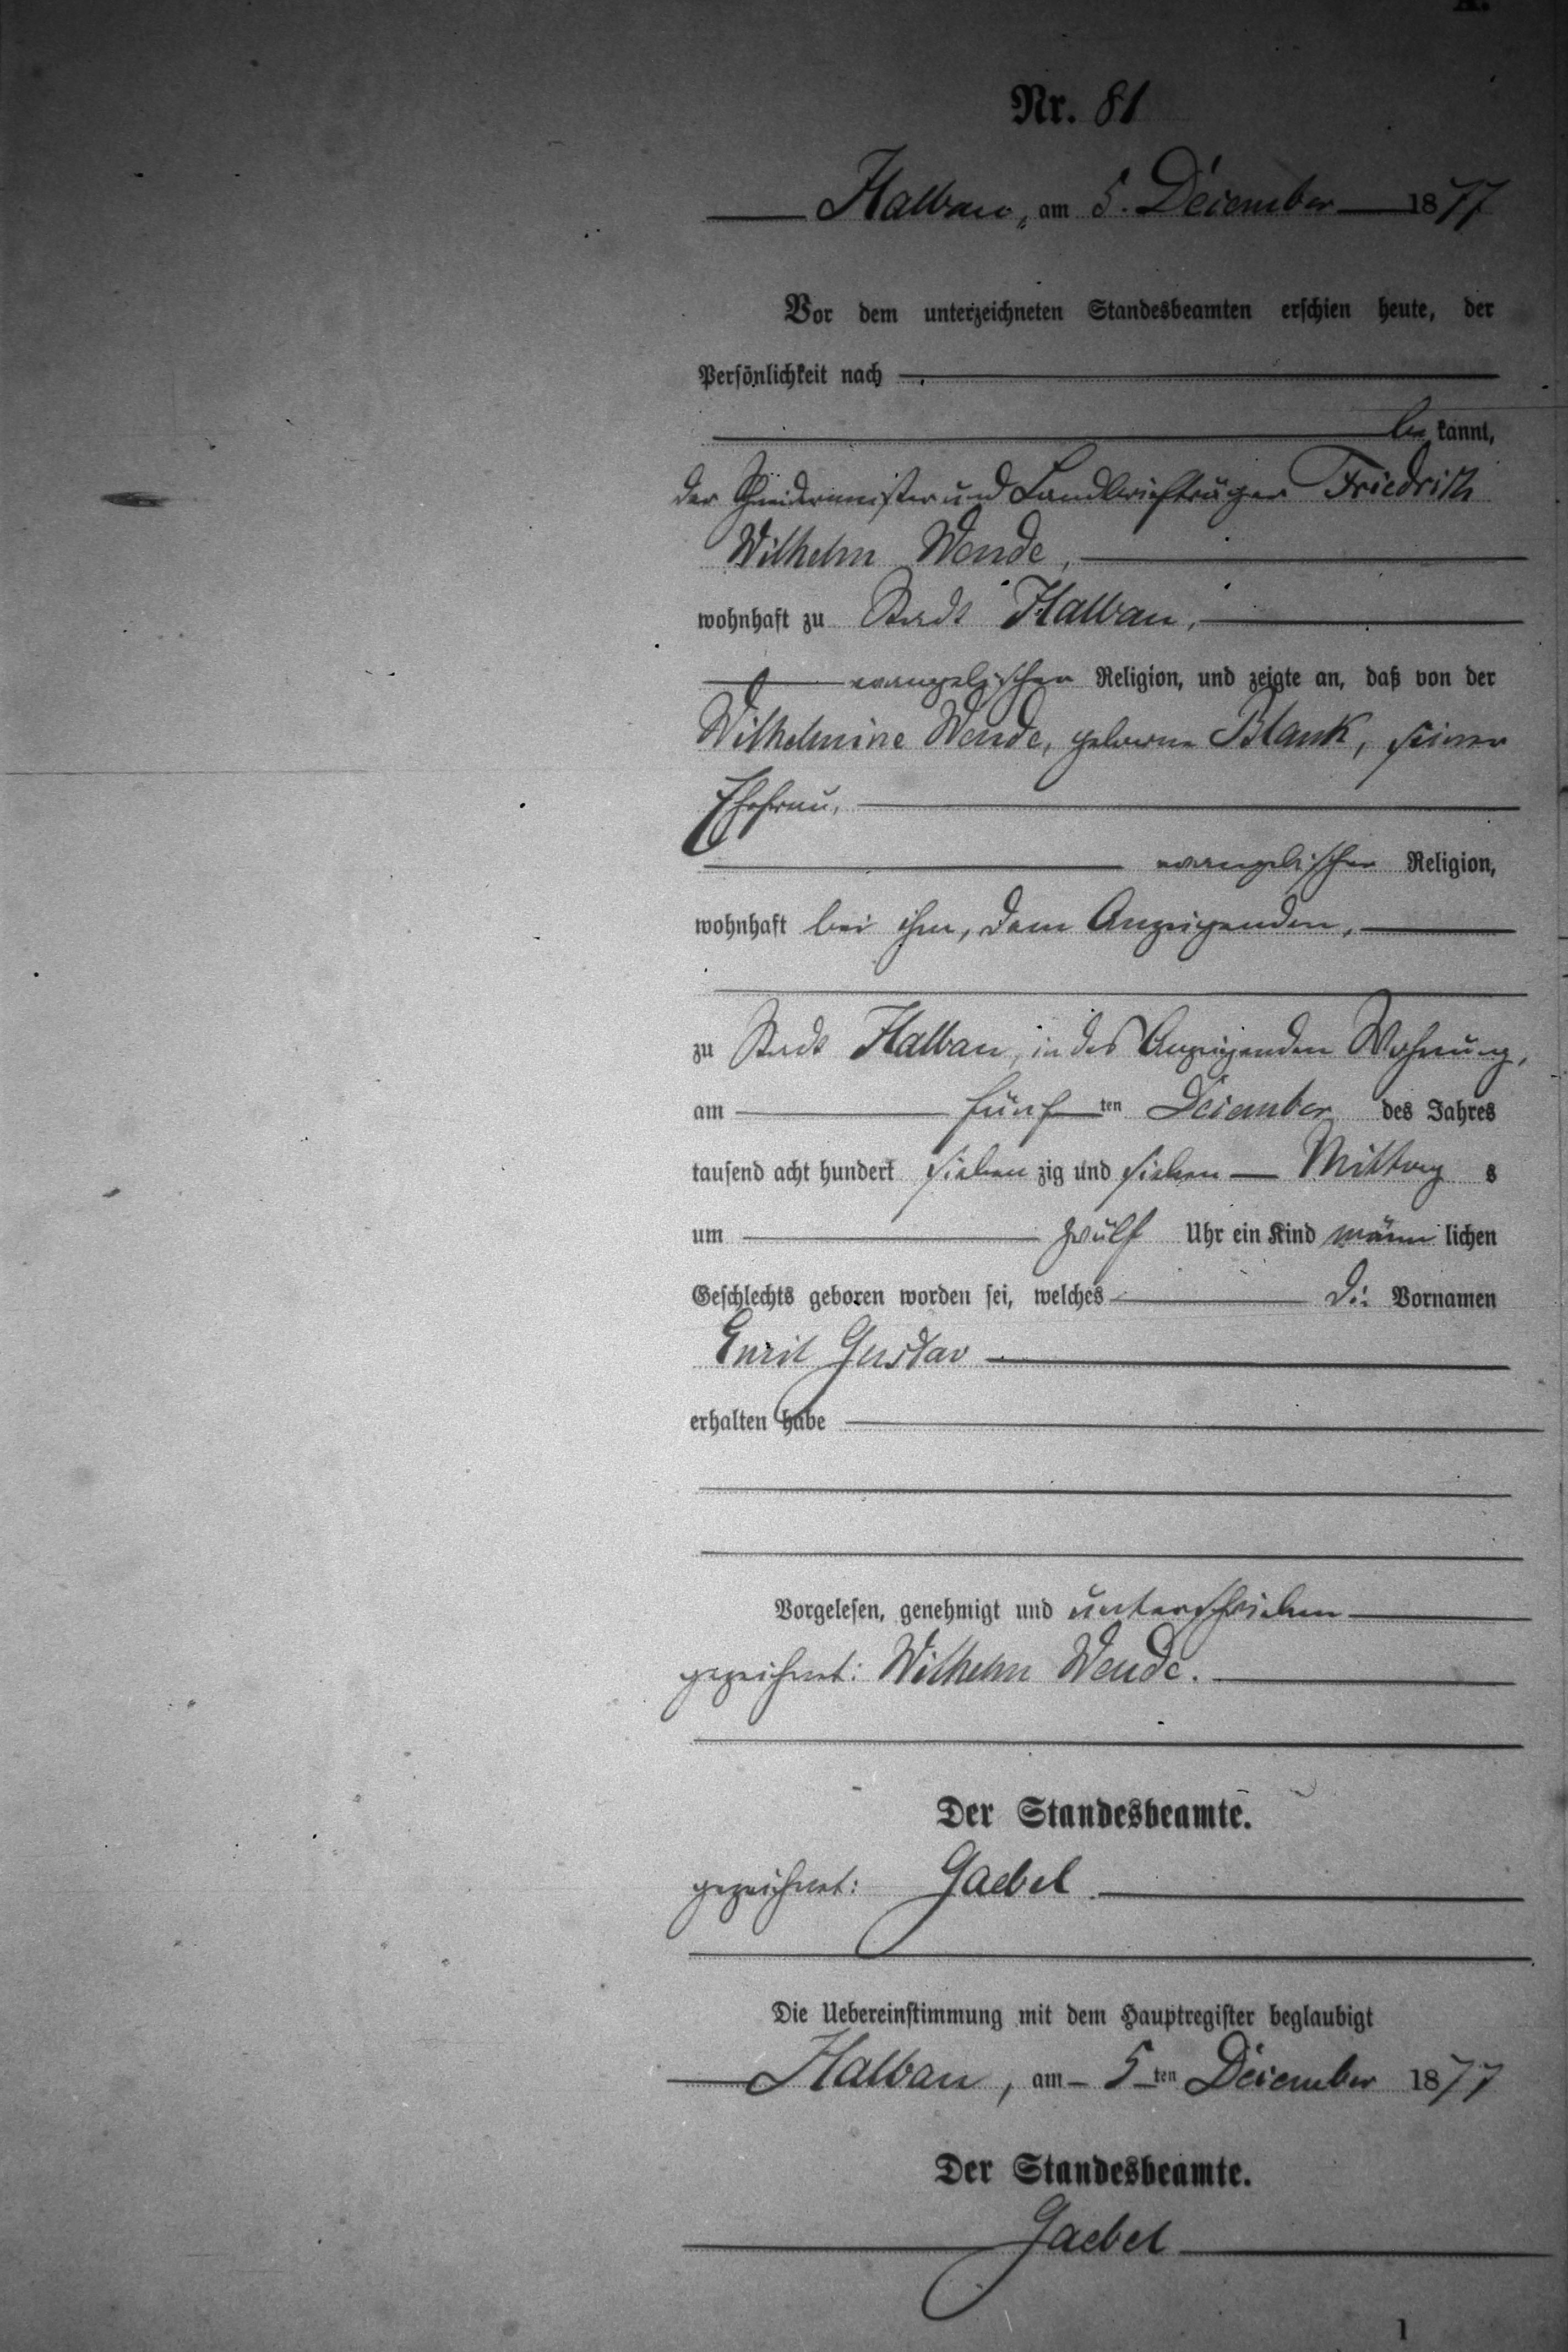 A.
Nr. 81
Halbau, am 5. December 1877
Vor dem unterzeichneten Standesbeamten erschien heute, der
Persönlichkeit nach
bekannt,
der Schneidermeister und Landbriefträger Friedrich
Wilhelm Wende,
wohnhaft zu Stadt Halbau,
evangelischer Religion, und zeigte an, daß von der
Wilhelmine Wende, geborne Blank, seiner
Ehefrau,
evangelischer Religion,
wohnhaft bei ihm, dem Anzeigenden,
zu Stadt Halbau, in des Anzeigenden Wohnung,
am fünf ten December des Jahres
tausend acht hundert sieben zig und sieben Mittag s
um zwölf Uhr ein Kind männ lichen
Geschlechts geboren worden sei, welches die Vornamen
Emil Gustav
erhalten habe
Vorgelesen, genehmigt und unterschrieben
gezeichnet: Wilhelm Wende.
Der Standesbeamte.
gezeichnet: Gaebel
Die Uebereinstimmung mit dem Hauptregister beglaubigt
Halbau, am 5ten December 1877
Der Standesbeamte.
Gaebel
1